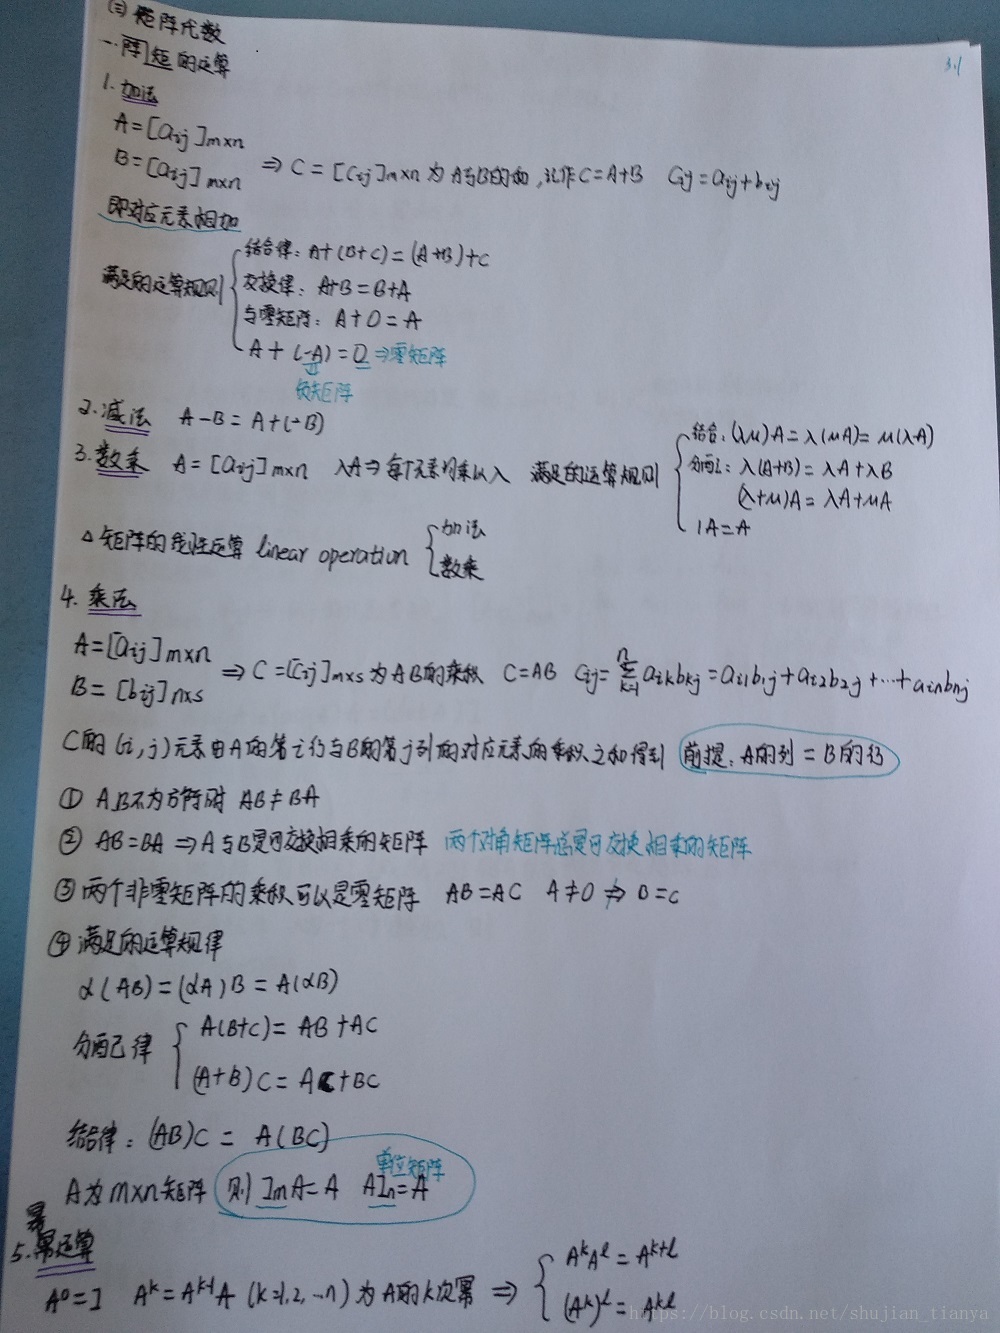 (三)矩阵代数
3.1
一.阵]矩 的运算
1.加法
A=[aij]m×n
B=[aij]m×n ⇒ C=[Cij]m×n 为A与B的和,记作C=A+B Cij=aij+bij
即对应元素相加
满足的运算规则
结合律: A+(B+C)=(A+B)+C
交换律: A+B=B+A
与零矩阵: A+O=A
A+(-A)=O ⇒零矩阵
负矩阵
2.减法 A-B=A+(-B)
3.数乘 A=[aij]m×n λA⇒每个元素均乘以λ 满足的运算规则
结合:(λμ)A=λ(μA)=μ(λA)
分配: λ(A+B)=λA+λB
(λ+μ)A=λA+μA
1A=A
△矩阵的线性运算 linear operation
加法
数乘
4.乘法
A=[aij]m×n
B=[bij]n×s ⇒ C=[Cij]m×s 为AB的乘积 C=AB Cij=∑ⁿₖ₌₁aikbkj=ai1b1j+ai2b2j+…+ainbnj
C的(i,j)元素由A的第i行与B的第j列的对应元素的乘积之和得到 前提:A的列=B的行
① A,B不为方阵时 AB≠BA
② AB=BA ⇒A与B是可交换相乘的矩阵 两个对角矩阵总是可交换相乘的矩阵
③两个非零矩阵的乘积可以是零矩阵 AB=AC A≠O ⇏ B=C
④满足的运算规律
α(AB)=(αA)B=A(αB)
分配律
A(B+C)=AB+AC
(A+B)C=AC+BC
结合律: (AB)C=A(BC)
单位矩阵
A为m×n矩阵 则ImA=A AIn=A
幂
5.幂运算
A⁰=I Aᵏ=Aᵏ⁻¹A (k=1,2,…n)为A的k次幂 ⇒
AᵏAˡ=Aᵏ⁺ˡ
(Aᵏ)ˡ=Aᵏˡ
https://blog.csdn.net/shujian_tianya